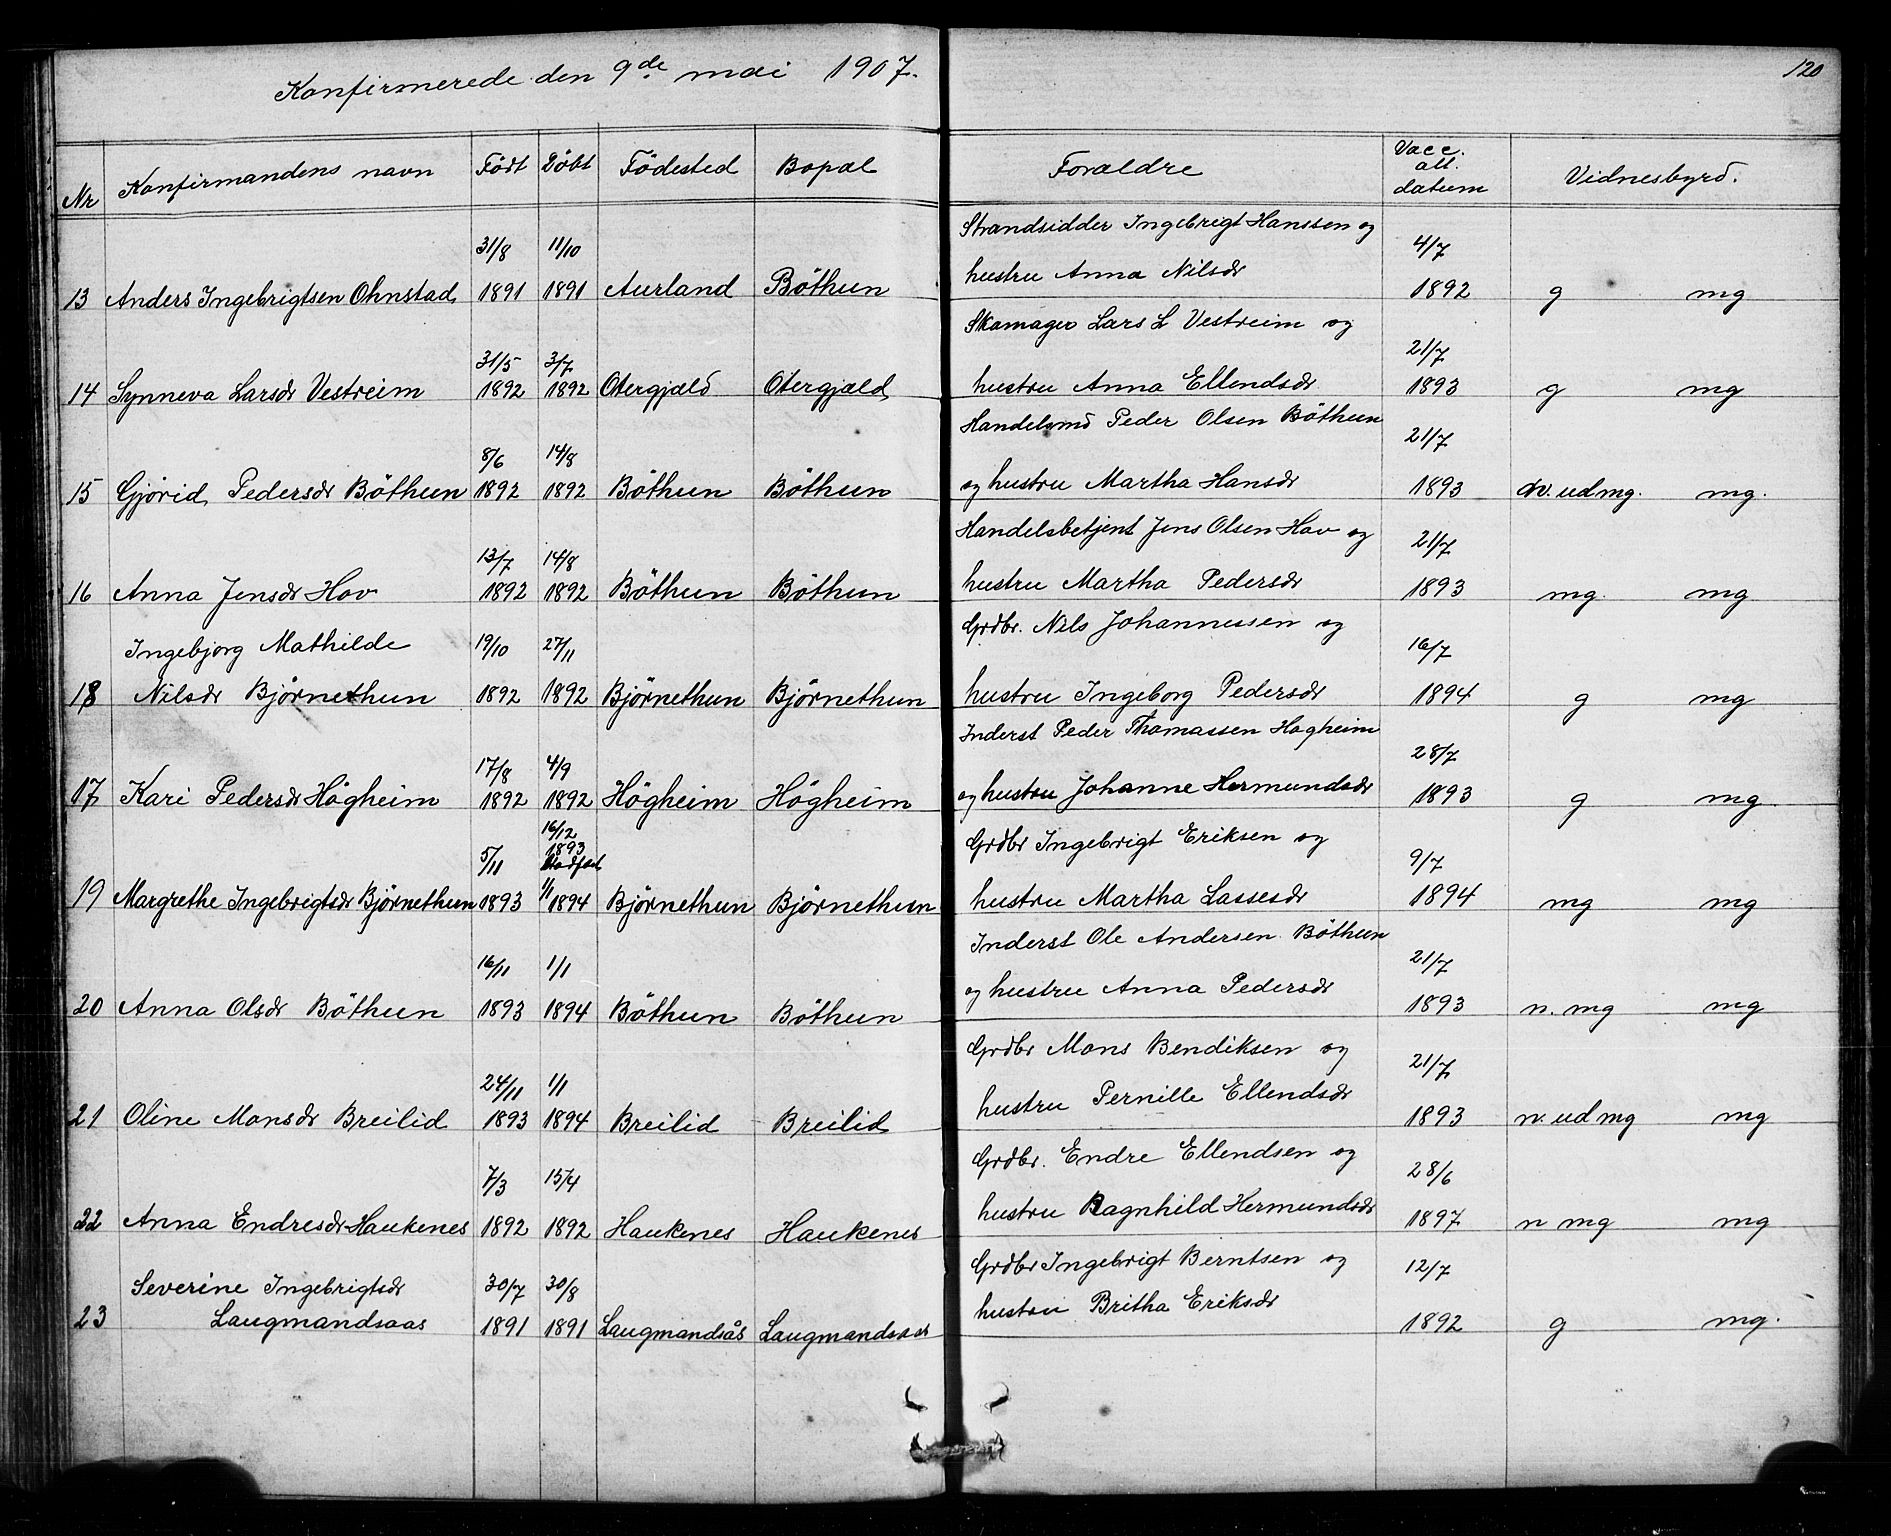 Konfirmerede den 9de mai 1907.
120
Nr Konfirmandens navn Födt Döbt Födested Bopæl Forældre Vacc. att. datum Vidnesbyrd.
31/8 11/10 Strandsidder Ingebrigt Hanssen og 4/7
13 Anders Ingebrigtsen Ohnstad 1891 1891 Aurland Böthun hustru Anna Nilsdr 1892 g mg
31/5 3/7 Skomager Lars L Vestreim og 21/7
14 Synneva Larsdr Vestreim 1892 1892 Otergjæld Otergjæld hustru Anna Ellendsdr 1893 g mg
8/6 14/8 Handelsmd Peder Olsen Böthun 21/7
15 Gjørid Pedersdr Böthun 1892 1892 Böthun Böthun og hustru Martha Hansdr 1893 n. ud mg. mg.
13/7 14/8 Handelsbetjent Jens Olsen Hov og 21/7
16 Anna Jensdr Hov 1892 1892 Böthun Böthun hustru Martha Pedersdr 1893 mg. mg
Ingebjorg Mathilde 19/10 27/11 Grdbr. Nils Johannessen og 16/7
18 Nilsdr Bjørnethun 1892 1892 Bjørnethun Bjørnethun hustru Ingeborg Pedersdr 1894 g mg
17/8 4/9 Inderst Peder Thomassen Hogheim 28/7
17 Kari Pedersdr Högheim 1892 1892 Högheim Högheim og hustru Johanne Hermundsdr 1893 g mg
5/11 16/12 1893 Stadfæst Grdbr Ingebrigt Eriksen og 9/7
19 Margrethe Ingebrigtsdr Bjørnethun 1893 1/1 1894 Bjørnethun Bjørnethun hustru Martha Lassesdr 1894 mg mg
16/11 1/1 Inderst Ole Andersen Böthun 21/7
20 Anna Olsdr Böthun 1893 1894 Böthun Böthun og hustru Anna Pedersdr 1893 n. mg mg
24/11 1/1 Grdbr Mons Bendiksen og 21/7
21 Oline Monsdr Breilid 1893 1894 Breilid Breilid hustru Pernille Ellendsdr 1893 n. ud mg mg
7/3 15/4 Grdbr. Endre Ellendsen og 28/6
22 Anna Endresdr Haukenes 1892 1892 Haukenes Haukenes hustru Ragnhild Hermundsdr 1897 n mg mg
Severine Ingebrigtsdr 30/7 30/8 Grdbr Ingebrigt Berntsen og 12/7
23 Laugmandsaas 1891 1891 Laugmandsås Laugmandsaas hustru Britha Eriksdr 1892 g mg.